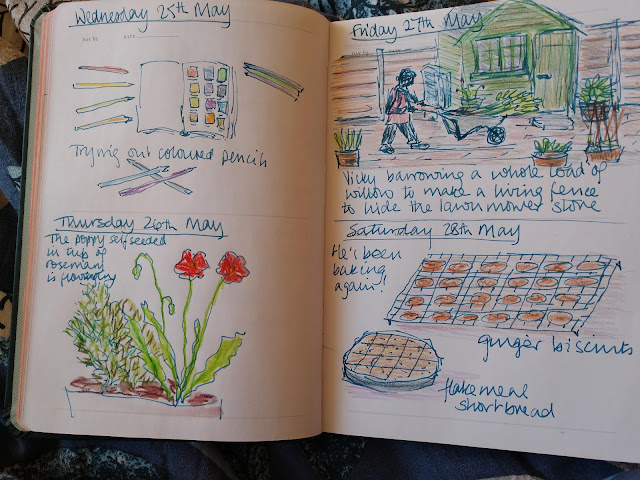 Wednesday 25th May
Trying out coloured pencils
Thursday 26th May
The poppy self seeded
in top of
rosemary
is flowering
Friday 27th May
Vicky barrowing a whole load of
willow to make a living fence
to hide the lawnmower store
Saturday 28th May
He's been
baking
again!
ginger biscuits
flakemeal
shortbread